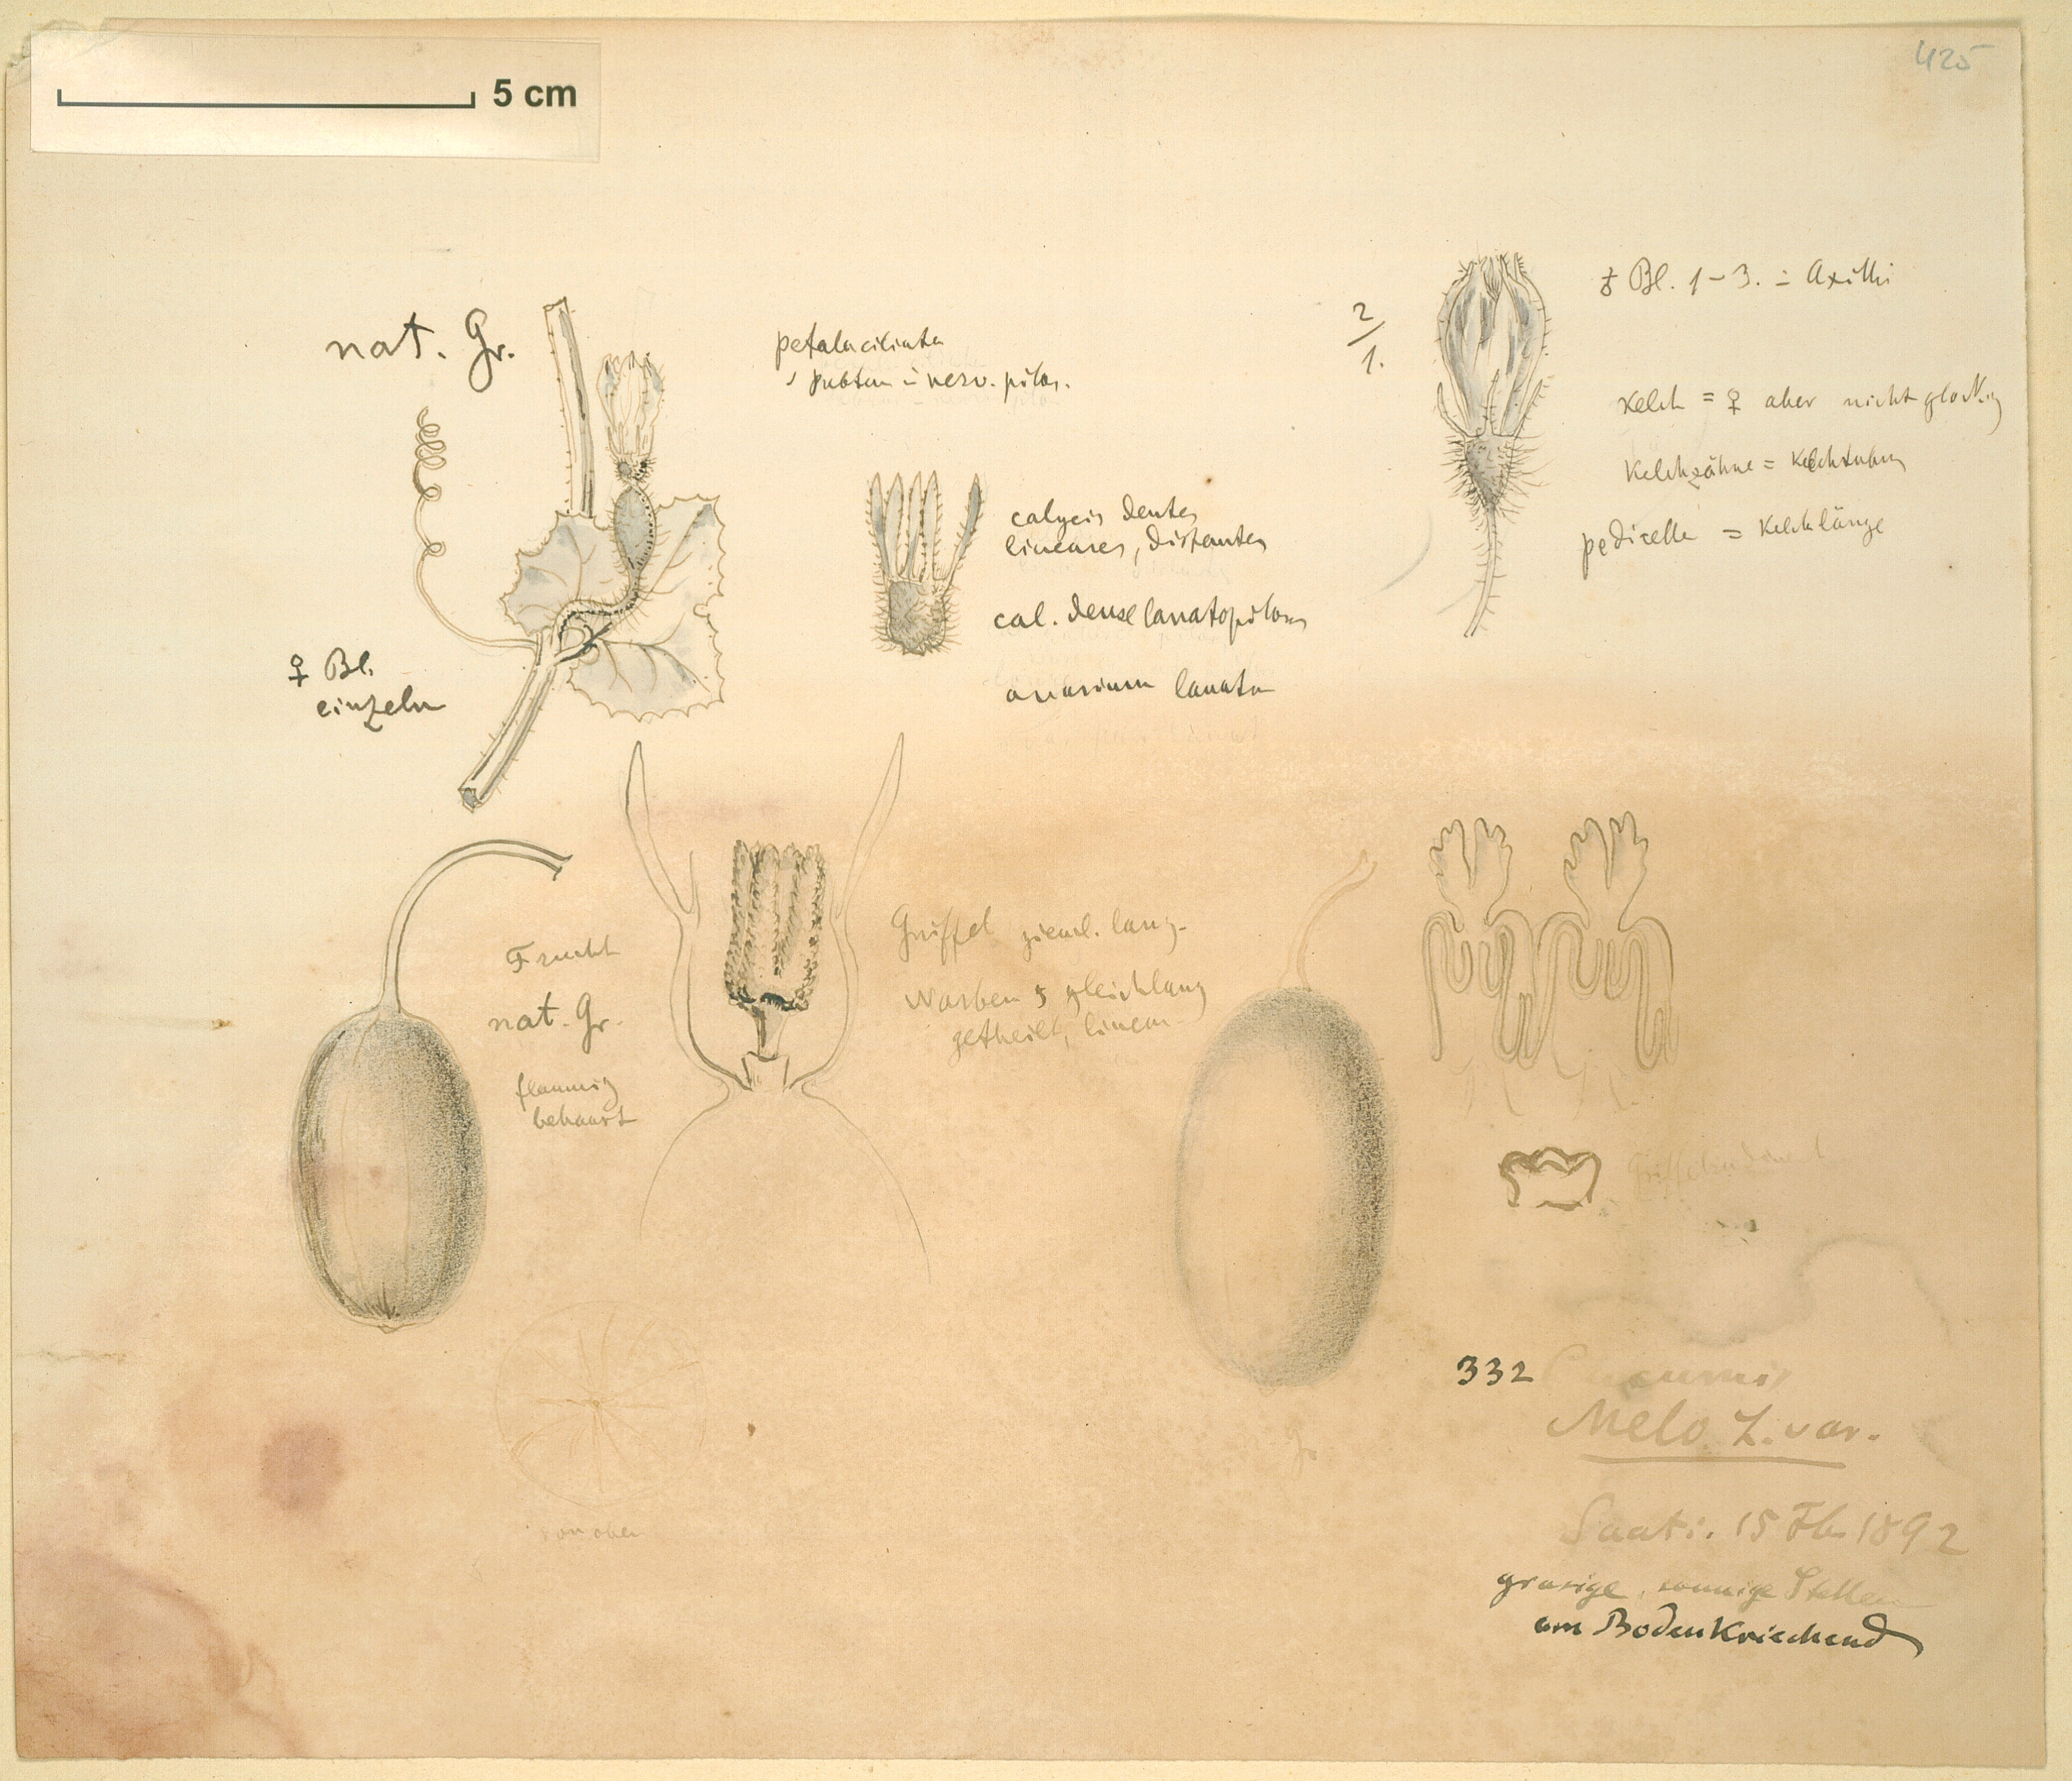 5 cm
425
nat. Gr.
♀ Bl.
einzeln
petala ciliata
subtus in nerv. pilos.
calycis dentes
lineares, distantes
cal. dense lanatopilosus
ovarium lanata
2/1.
♂ Bl. 1-3. in Axilli
Kelch = ♀ aber nicht glockig
Kelchzähne = Kelchtubus
pedicelli = Kelchlänge
Frucht
nat. Gr.
flaumig
behaart
Griffel zieml. lang.
Narben 5 gleichlang
getheilt, linear
Griffelrudiment
von oben
332 Cucumis
Melo L. var.
Saati. 15 Fb. 1892
grasige, sonnige Stellen
am Boden kriechend